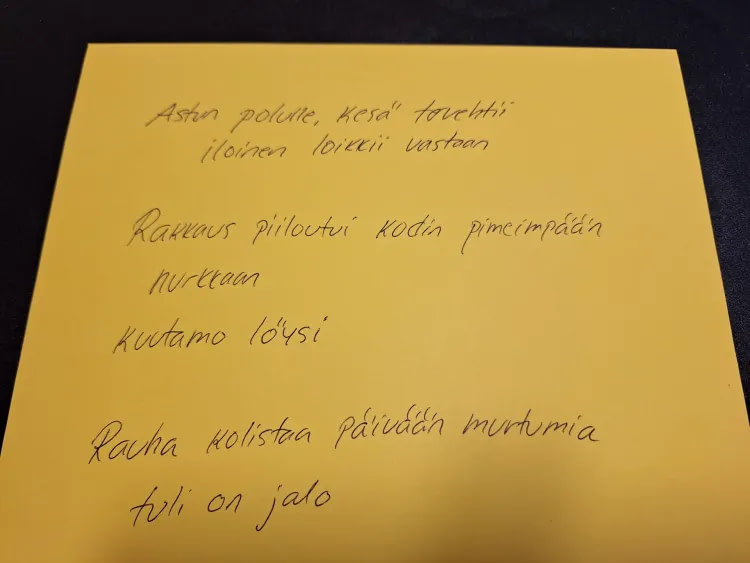 Astun polulle, kesä tovehtii
iloinen loikkii vastaan
Rakkaus piiloutui kodin pimeimpään
nurkkaan
kuutamo löysi
Rauha kolistaa päivään murtumia
tuli on jalo